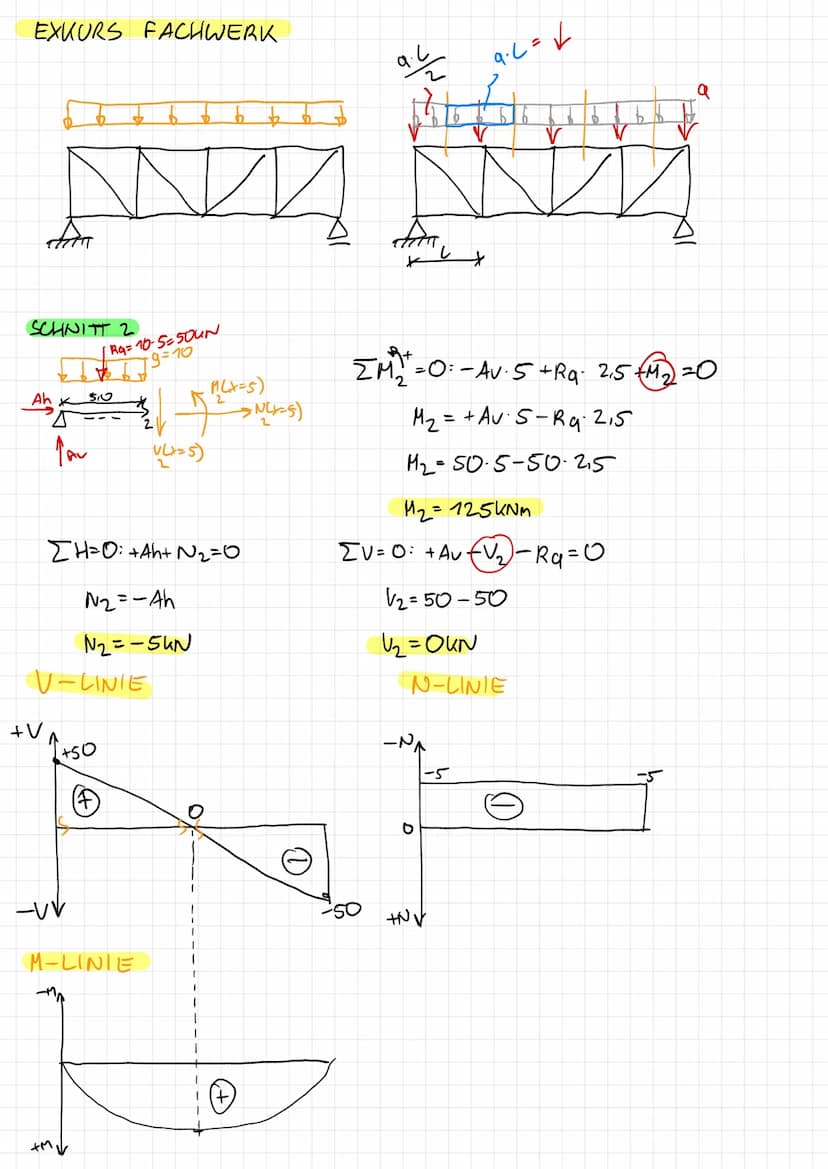 EXKURS FACHWERK
q·L/2
q·L = ↓
q
L
SCHNITT 2
Rq = 10·5 = 50kN
q = 10
Ah
5,0
2
Av
M2(x=5)
N2(x=5)
V2(x=5)
ΣM2+ = 0: -Av·5 + Rq·2,5 + M2 = 0
M2 = +Av·5 - Rq·2,5
M2 = 50·5 - 50·2,5
M2 = 125kNm
ΣH=0: +Ah + N2 = 0
N2 = -Ah
N2 = -5kN
ΣV = 0: +Av - V2 - Rq = 0
V2 = 50 - 50
V2 = 0kN
V-LINIE
N-LINIE
+V
+50
+
0
-
-V
-50
-N
-5
-5
-
0
+N
M-LINIE
-M
+
+M